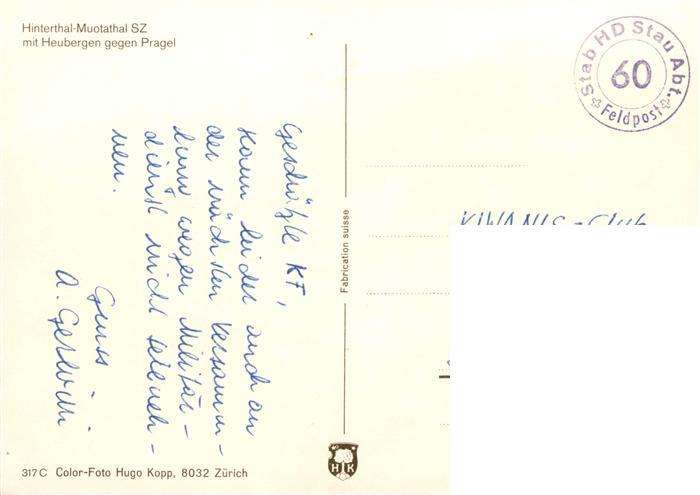 Hinterthal-Muotathal SZ
mit Heubergen gegen Pragel
Stab HD Stau Abt.
60
Feldpost
Geschätzte KF,
Kann leider auch an
der nächsten Versamm-
lung wegen Militär-
dienst nicht teilneh-
men.
Gruss
A.
Fabrication suisse
KIWANIS-Club
317 C Color-Foto Hugo Kopp, 8032 Zürich
H K